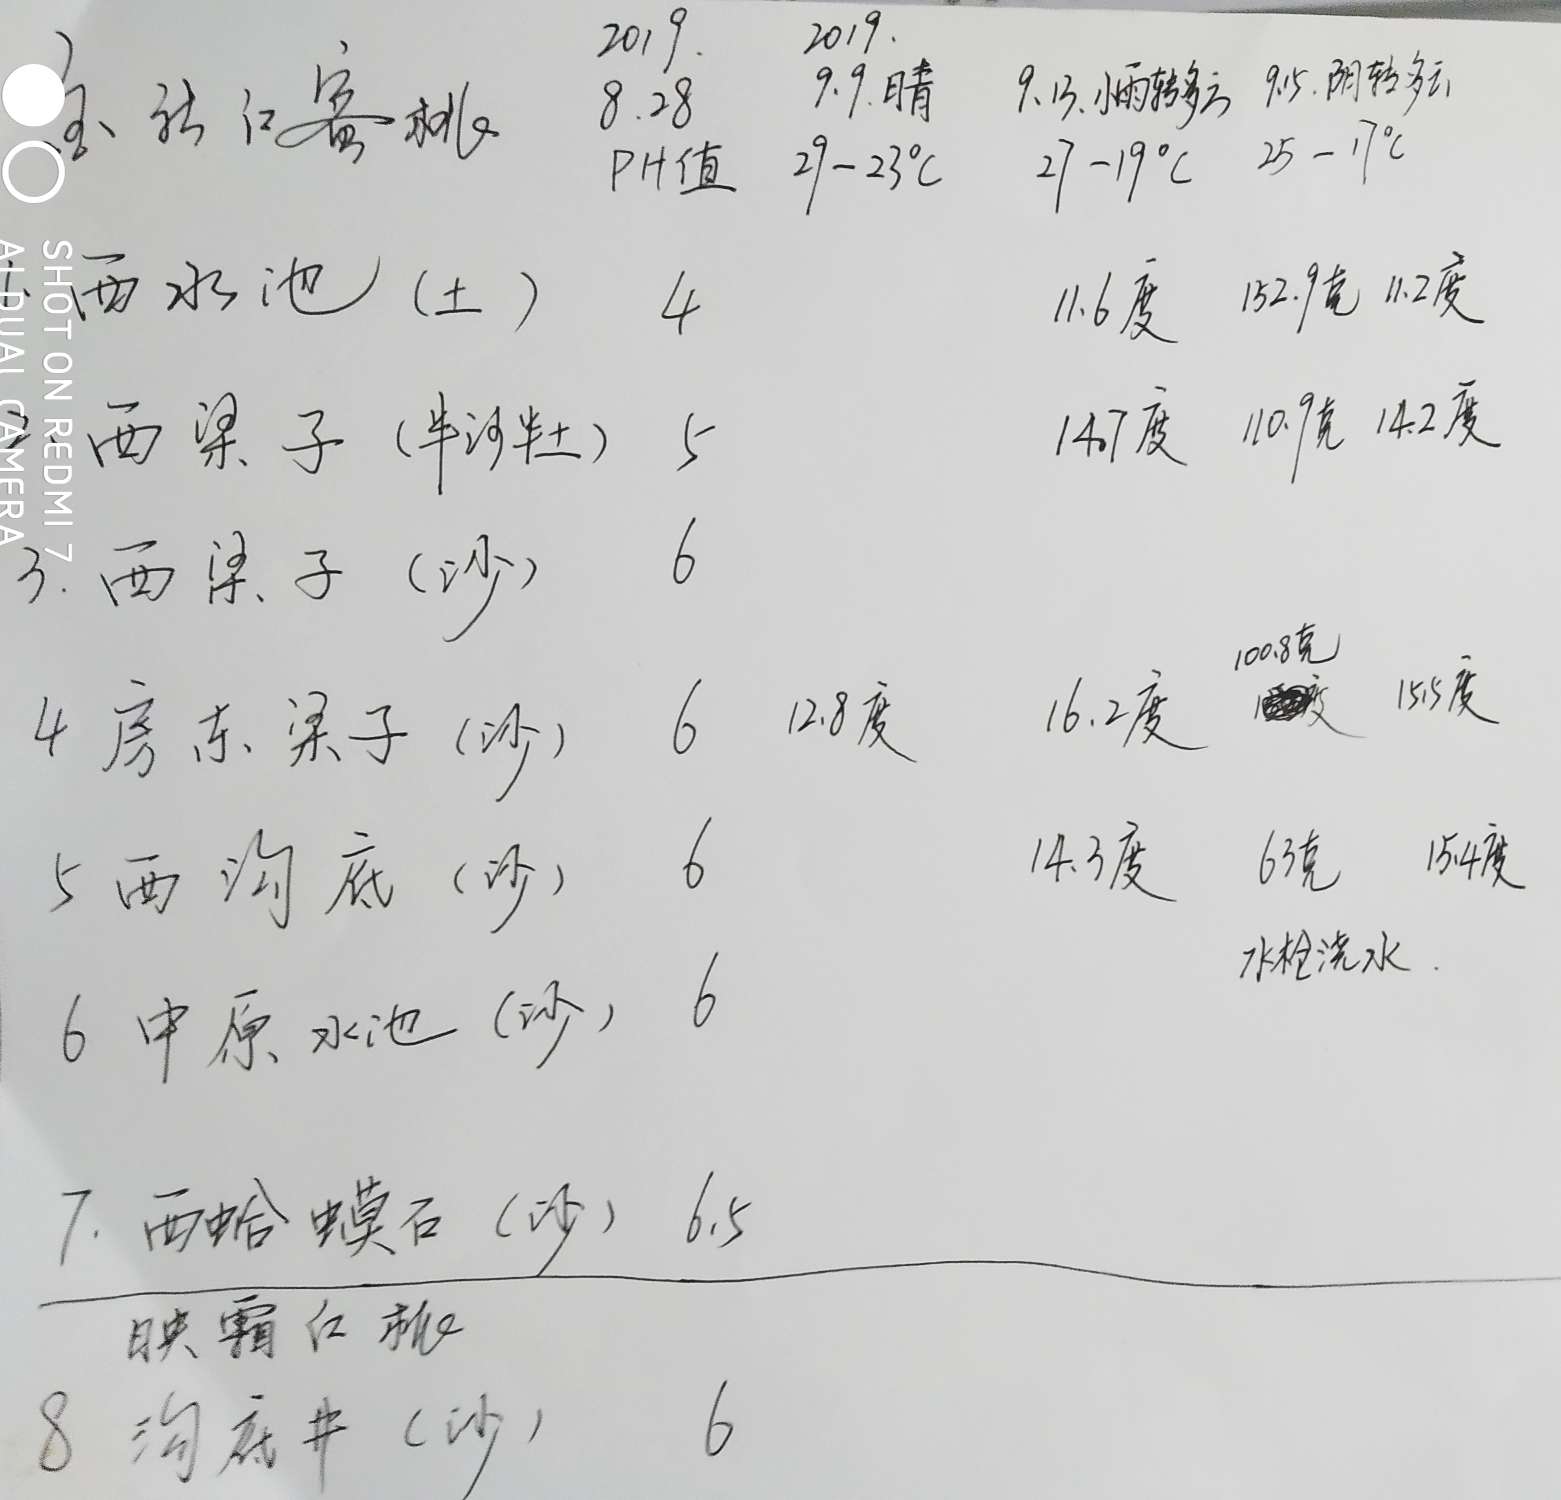 2019. 2019.
金秋红蜜桃 8.28 9.9.晴 9.13.小雨转多云 9.15.阴转多云
PH值 29-23℃ 27-19℃ 25-17℃
西水池(土) 4 11.6度 152.9克 11.2度
西梁子(半沙半土) 5 14.7度 110.9克 14.2度
3.西梁子(沙) 6
100.8克
4房东梁子(沙) 6 12.8度 16.2度 15.5度
5西沟底(沙) 6 14.3度 63克 15.4度
水栓浇水.
6中原水池(沙) 6
7.西蛤蟆石(沙) 6.5
映霜红桃
8沟底井(沙) 6
SHOT ON REDMI 7
AI DUAL CAMERA